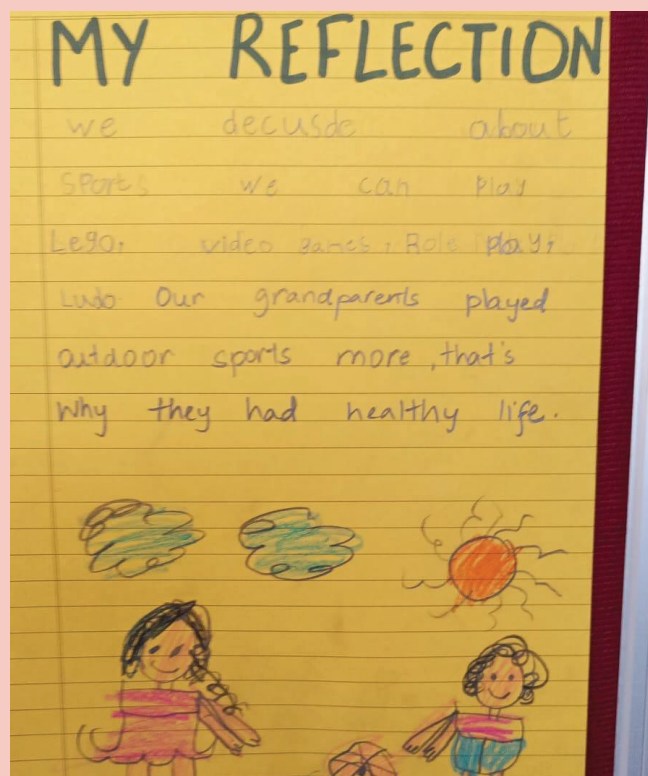 MY REFLECTION
we decusde about
SPorts we can play
Lego, video games, Role play,
Ludo Our grandparents played
outdoor sports more, that's
Why they had healthy life.